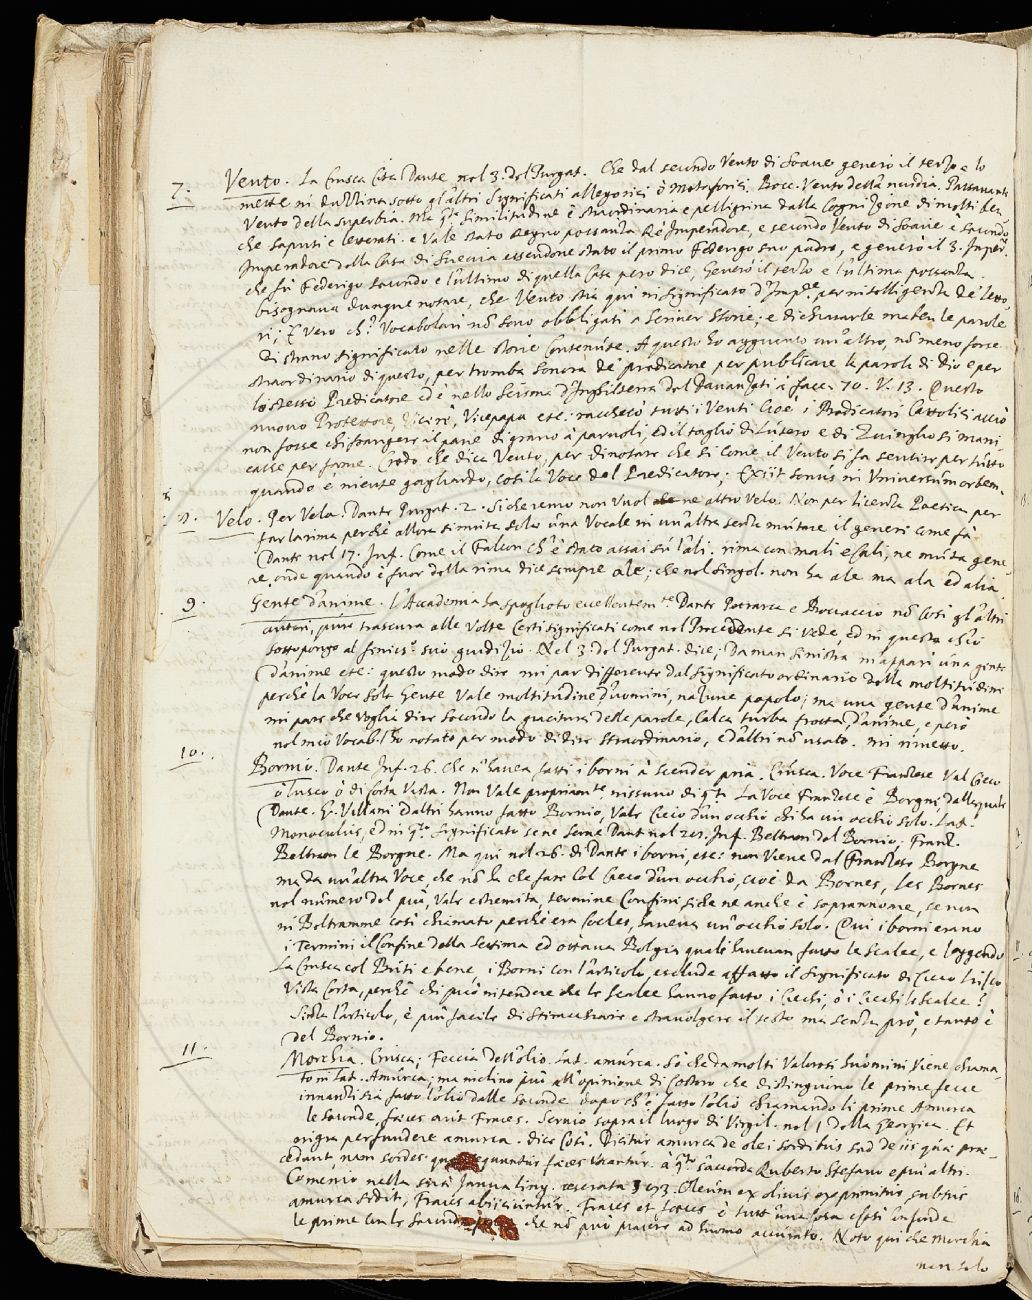 7. Vento. La Crusca cita Dante nel 3. del Purgat. Che dal secondo Vento di Soave generò il terzo e lo
mette in dozzina sotto gl'altri significati allegorici ò metaforici. Bocc. Vento della invidia. Passavanti
Vento della superbia. Ma q.ta similitudine è straordinaria e pellegrina dalla cognizione di molti ben
che saputi e letterati. e Vale stato Regno possanza Rè Imperadore, e secondo Vento di Soave è secondo
Imperadore della Casa di Suevia essendone stato il primo Federigo suo padre, e generò il 3. Imper.
che fù Federigo secondo e l'ultimo di quella Casa però dice, Generò il terzo e l'ultima possanza.
bisognava dunque notare, che Vento stia qui in significato d'Imp.re per intelligenza de' letto
ri; È vero ch.e Vocabolari nō sono obbligati a scriver storie; e dichiararle ma ben le parole
di strano significato nelle storie contenute. A questo ho aggiunto un'altro, nō meno forse
straordinario di questo, per tromba sonora de' predicatore per publicare la parola di Dio e per
lo stesso Predicatore ed è nello Scisma d'Inghilterra del Davanzati à facca 70. V. 13. Questo
nuovo Protettore, Vicerè, Vicepapa etc. raccheto tutti i Venti cioè i Predicatori Cattolici acciò
non fosse chi frangere il pane di grano à parvoli, ed il loglio di Lutero e di Zuinglio si mani
casse per fame. Credo che dica Vento, per dinotare che si come il Vento si fà sentire per tutto
quando è niente gagliardo, così la Voce del Predicatore; Exiit sonus in Universum orbem.
8. Velo. Per Vela. Dante Purgat. 2. Siche remo non vuol ne altro velo. Non per licenza Poetica per
far la rima perchè allora si muta solo una Vocale in un'altra senza mutare il genere come fà
Dante nel 17. Inf. Come il Falcon ch'è stato assai sù l'ali. rima con mali e sali, ne muta gene
re, onde quando è fuor della rima dice sempre ale; che nel singol. non ha ale ma ala ed alia.
9. Gente d'anime. L'Accademia ha spogliato eccellentem.te Dante Petrarca e Boccaccio nō così gl'altri
autori, pure trascura alle volte certi significati come nel Precedente si vede, ed in questa ch'io
sottopongo al feniciss.o suo giudizio. Nel 3. del Purgat. dice; Da man sinistra m'apparì una gente
d'anime etc: questo modo dire mi par differente dal significato ordinario della moltitudine
perchè la Voce sola Gente Vale moltitudine d'uomini, nazione popolo; ma una gente d'anime
mi pare che voglia dire secondo la giacitura delle parole, Calca turba frotta d'anime, e però
nel mio Vocab. l'ho notato per modo di dire straordinario, e d'altri nō usato. mi rimetto.
10. Bornio. Dante Inf. 26. che n'havea fatti i borni à scender pria. Crusca. Voce Franzese Val Cieco
ò lusco ò di corta Vista. Non Vale propriam.te nissuno di q.ti La Voce Franzese è Borgni dalla quale
Dante. G. Villani ed altri hanno fatto Bornio, Vale Cieco d'un occhio chi ha un occhio solo. Lat.
Monoculus, ed in q.to significato se ne serve Dant. nel 28. Inf. Beltram dal Bornio; Franz.
Beltram le Borgne. Ma qui nel 26. di Dante i borni, etc: non viene dal Franzese Borgne
ma da un'altra Voce che nō hà che fare col cieco d'un occhio, cioè da Bornes, les Bornes
nel numero del più, Vale estremità, termine Confini, siche ne anche è soprannome, se non
in Beltramme così chiamato perchè era Cocles, haveva un occhio solo. Qui i borni erano
i Termini il Confine della Settima ed ottava Bolgia quali havevan fatto le Scalee, e leggendo
La Crusca col Buti e bene, i Borni con l'articolo, esclude affatto il significato di Cieco lusco
Vista corta, perchè chi può intendere che le scalee hanno fatto i ciechi, ò i ciechi le scalee?
Senza l'articolo, è più facile di stiracchiare e stravolgere il testo ma senza prò, e tanto è
del Bornio.
11. Morchia. Crusca; Feccia dell'olio. Lat. amurca. Sò che da molti Valorosi huomini viene chiama-
to in Lat. Amurca; ma inclino più all'opinione di Costoro che distinguono le prime fecce
innanzi sia fatto l'olio dalle seconde dopo ch'è fatto l'olio chiamando li prime Amurca
le seconde, faeces aut Fraces. Servio sopra il luogo di Virgil. nel 1 della Georgica. Et
nigra perfundere amurca. dice così. Dicitur amurca de olei sordibus sed de iis quae prae-
cedunt, nam sordes quae sequuntur faeces vocantur. à q.to s'accorda Ruberto Stefano e più altri.
Comenio nella sua Janua ling. reserata 393. Oleum ex olivis exprimitur, subtus
amurca sedit, Fraces abijciuntur. Fraces et faeces è tutt'una cosa e così confonde
le prime con le seconde che nō può piacere ad huomo accurato. Noto qui che Morchia
non solo